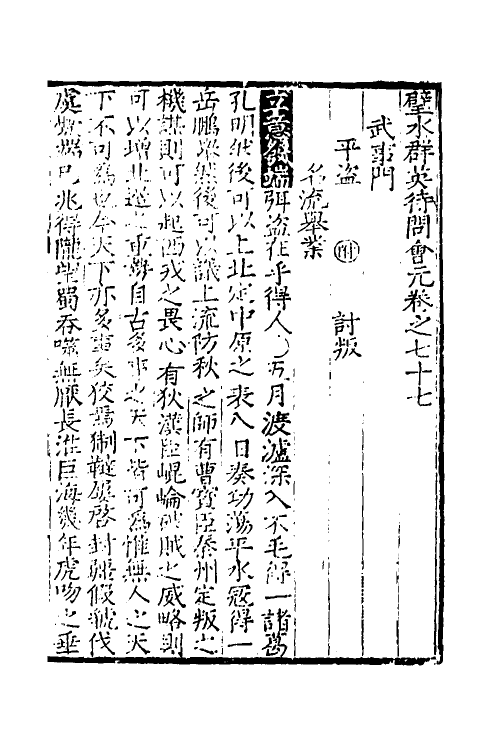 璧水群英待問會元卷之七十七
武事門
平盜 附 討叛
名流舉業
立意發端弭盜在乎得人○五月渡瀘深入不毛得一諸葛
孔明然後可以上北定中原之表八日奏功蕩平水冦得一
岳鵬舉然後可以議上流防秋之師有曹寳臣秦州定叛之
機謀則可以起西戎之畏心有狄漢臣崐崘破賊之威略則
可以增北邊之重勢自古多事之天下皆可爲惟無人之天
下不可爲也今天下亦多事矣狡焉猘韃屢啓封疆假虢伐
虞弊端已兆得隴望蜀吞噬無厭長淮巨海幾年虎吻之垂